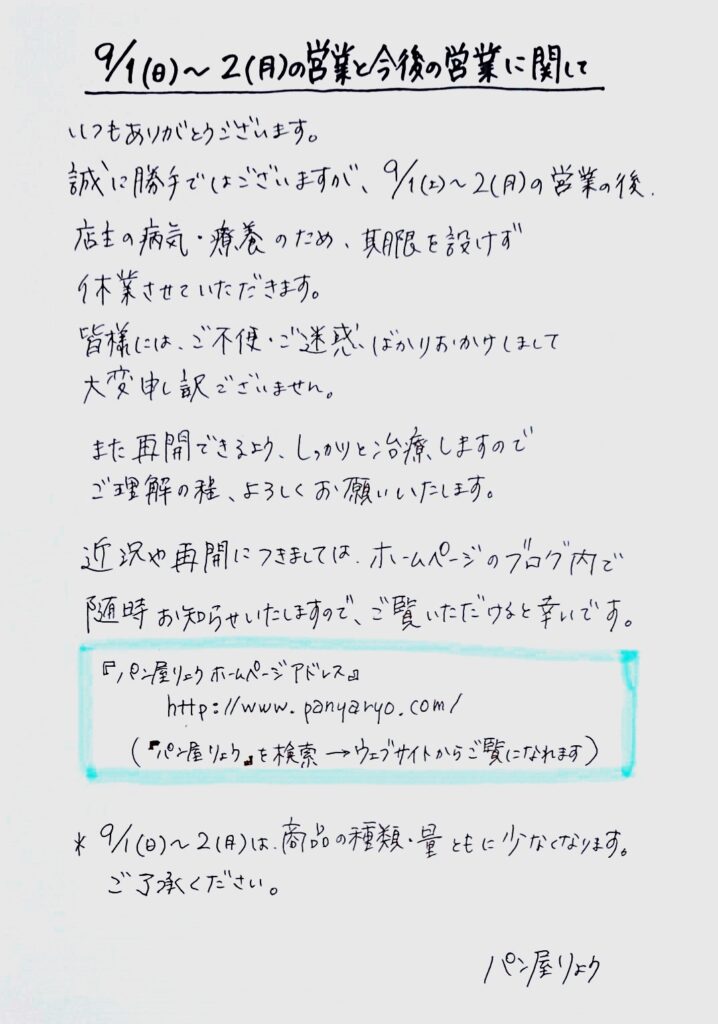 9/1(日)～2(月)の営業と今後の営業に関して
いつもありがとうございます。
誠に勝手ではございますが、9/1(土)～2(月)の営業の後、
店主の病気・療養のため、期限を設けず
休業させていただきます。
皆様には、ご不便・ご迷惑ばかりおかけしまして
大変申し訳ございません。
また再開できるよう、しっかりと治療しますので
ご理解の程、よろしくお願いいたします。
近況や再開につきましては、ホームページのブログ内で
随時お知らせいたしますので、ご覧いただけると幸いです。
『パン屋りょくホームページアドレス』
http://www.panyaryo.com/
(『パン屋りょく』を検索→ウェブサイトからご覧になれます)
* 9/1(日)～2(月)は、商品の種類・量ともに少なくなります。
ご了承ください。
パン屋りょく